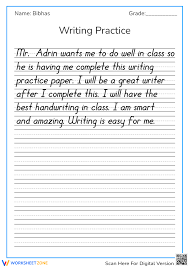 Name: Bibhas
Grade:
Writing Practice
Mr. Adrin wants me to do well in class so
he is having me complete this writing
practice paper. I will be a great writer
after I complete this. I will have the
best handwriting in class. I am smart
and amazing. Writing is easy for me.
WORKSHEETZONE
Scan Here For Digital Version